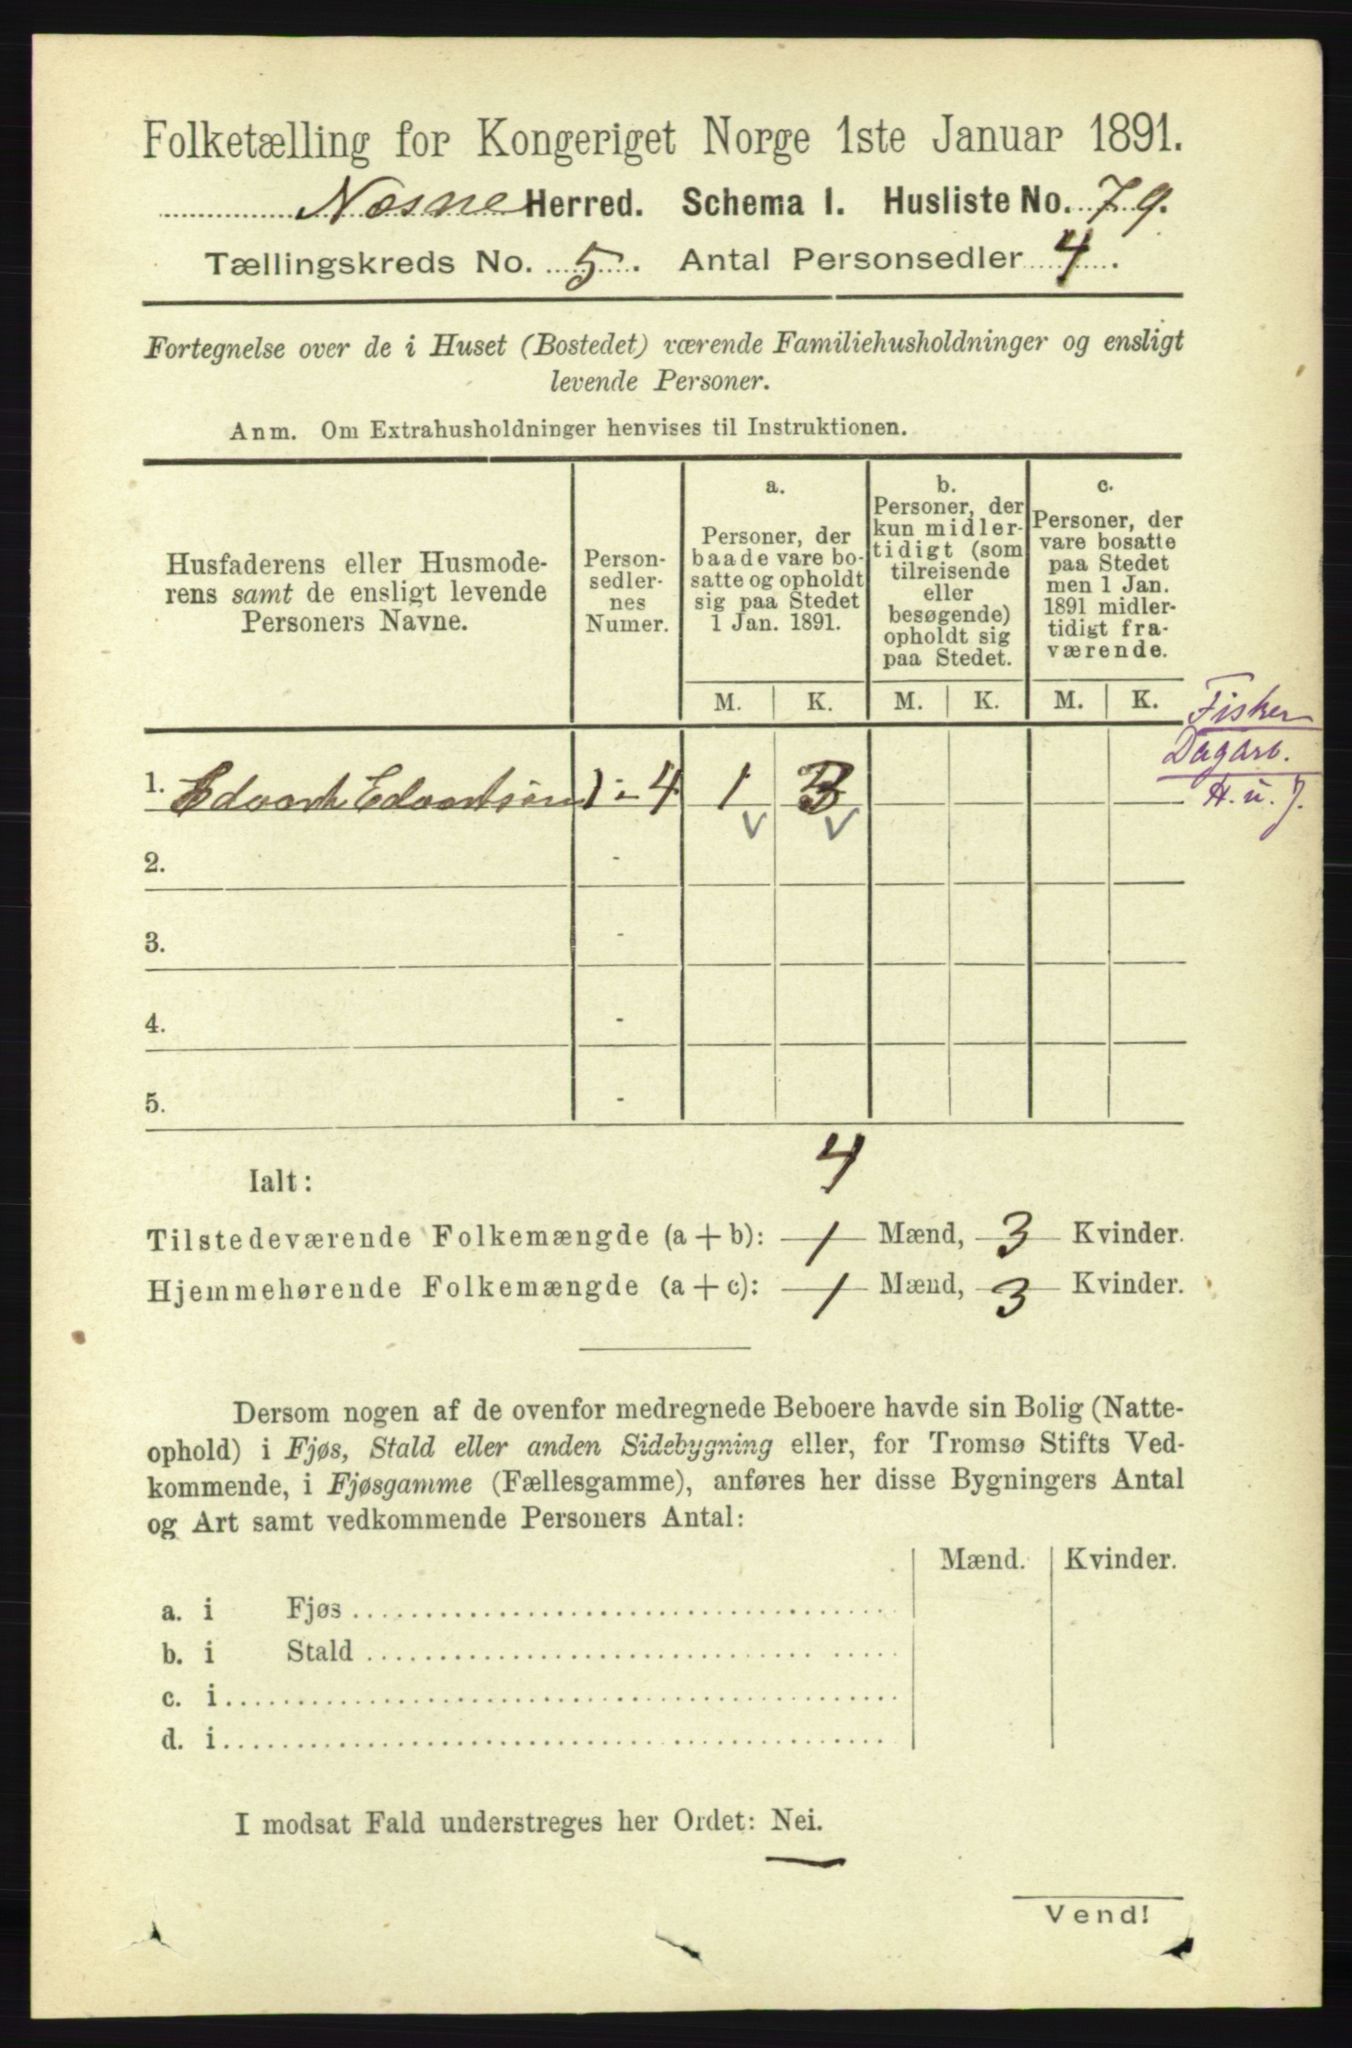 Folketælling for Kongeriget Norge 1ste Januar 1891.
Næsne Herred. Schema 1. Husliste No. 79.
Tællingskreds No. 5. Antal Personsedler 4.
Fortegnelse over de i Huset (Bostedet) værende Familiehusholdninger og ensligt
levende Personer.
Anm. Om Extrahusholdninger henvises til Instruktionen.
Husfaderens eller Husmode-
rens samt de ensligt levende
Personers Navne.
Person-
sedler-
nes
Numer.
a.
Personer, der
baade vare bo-
satte og opholdt
sig paa Stedet
1 Jan. 1891.
b.
Personer, der
kun midler-
tidigt (som
tilreisende
eller
besøgende)
opholdt sig
paa Stedet.
c.
Personer, der
vare bosatte
paa Stedet
men 1 Jan.
1891 midler-
tidigt fra-
værende.
M. K. M. K. M. K.
Fisker
Dagarb.
H. u. J.
1. Edvart Edvartsen 1 - 4 1 3
2. -
3. -
4. -
5. -
4
Ialt:
Tilstedeværende Folkemængde (a + b): 1 Mænd, 3 Kvinder.
Hjemmehørende Folkemængde (a + c): 1 Mænd, 3 Kvinder.
Dersom nogen af de ovenfor medregnede Beboere havde sin Bolig (Natte-
ophold) i Fjøs, Stald eller anden Sidebygning eller, for Tromsø Stifts Ved-
kommende, i Fjøsgamme (Fællesgamme), anføres her disse Bygningers Antal
og Art samt vedkommende Personers Antal:
Mænd. Kvinder.
a. i Fjøs
b. i Stald
c. i
d. i
I modsat Fald understreges her Ordet: Nei.
Vend!